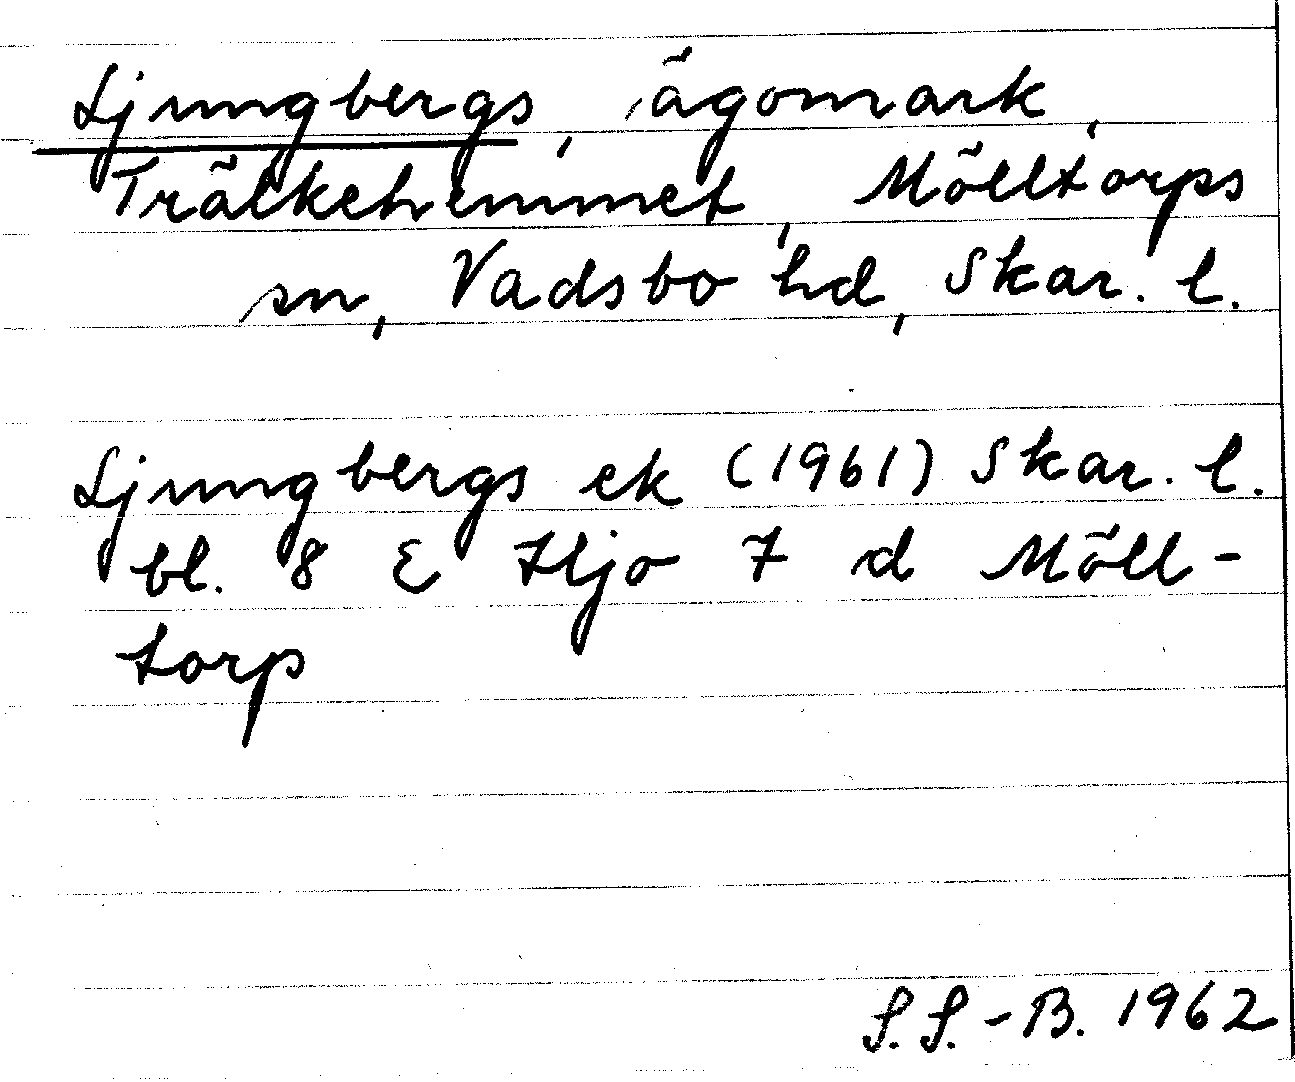 Ljungbergs, ägomark,
Trälkehemmet, Mölltorps
sn, Vadsbo hd, Skar. l.
Ljungbergs ek (1961) Skar. l.
bl. 8 E Hjo 7 d Möll-
torp
S. S.-B. 1962